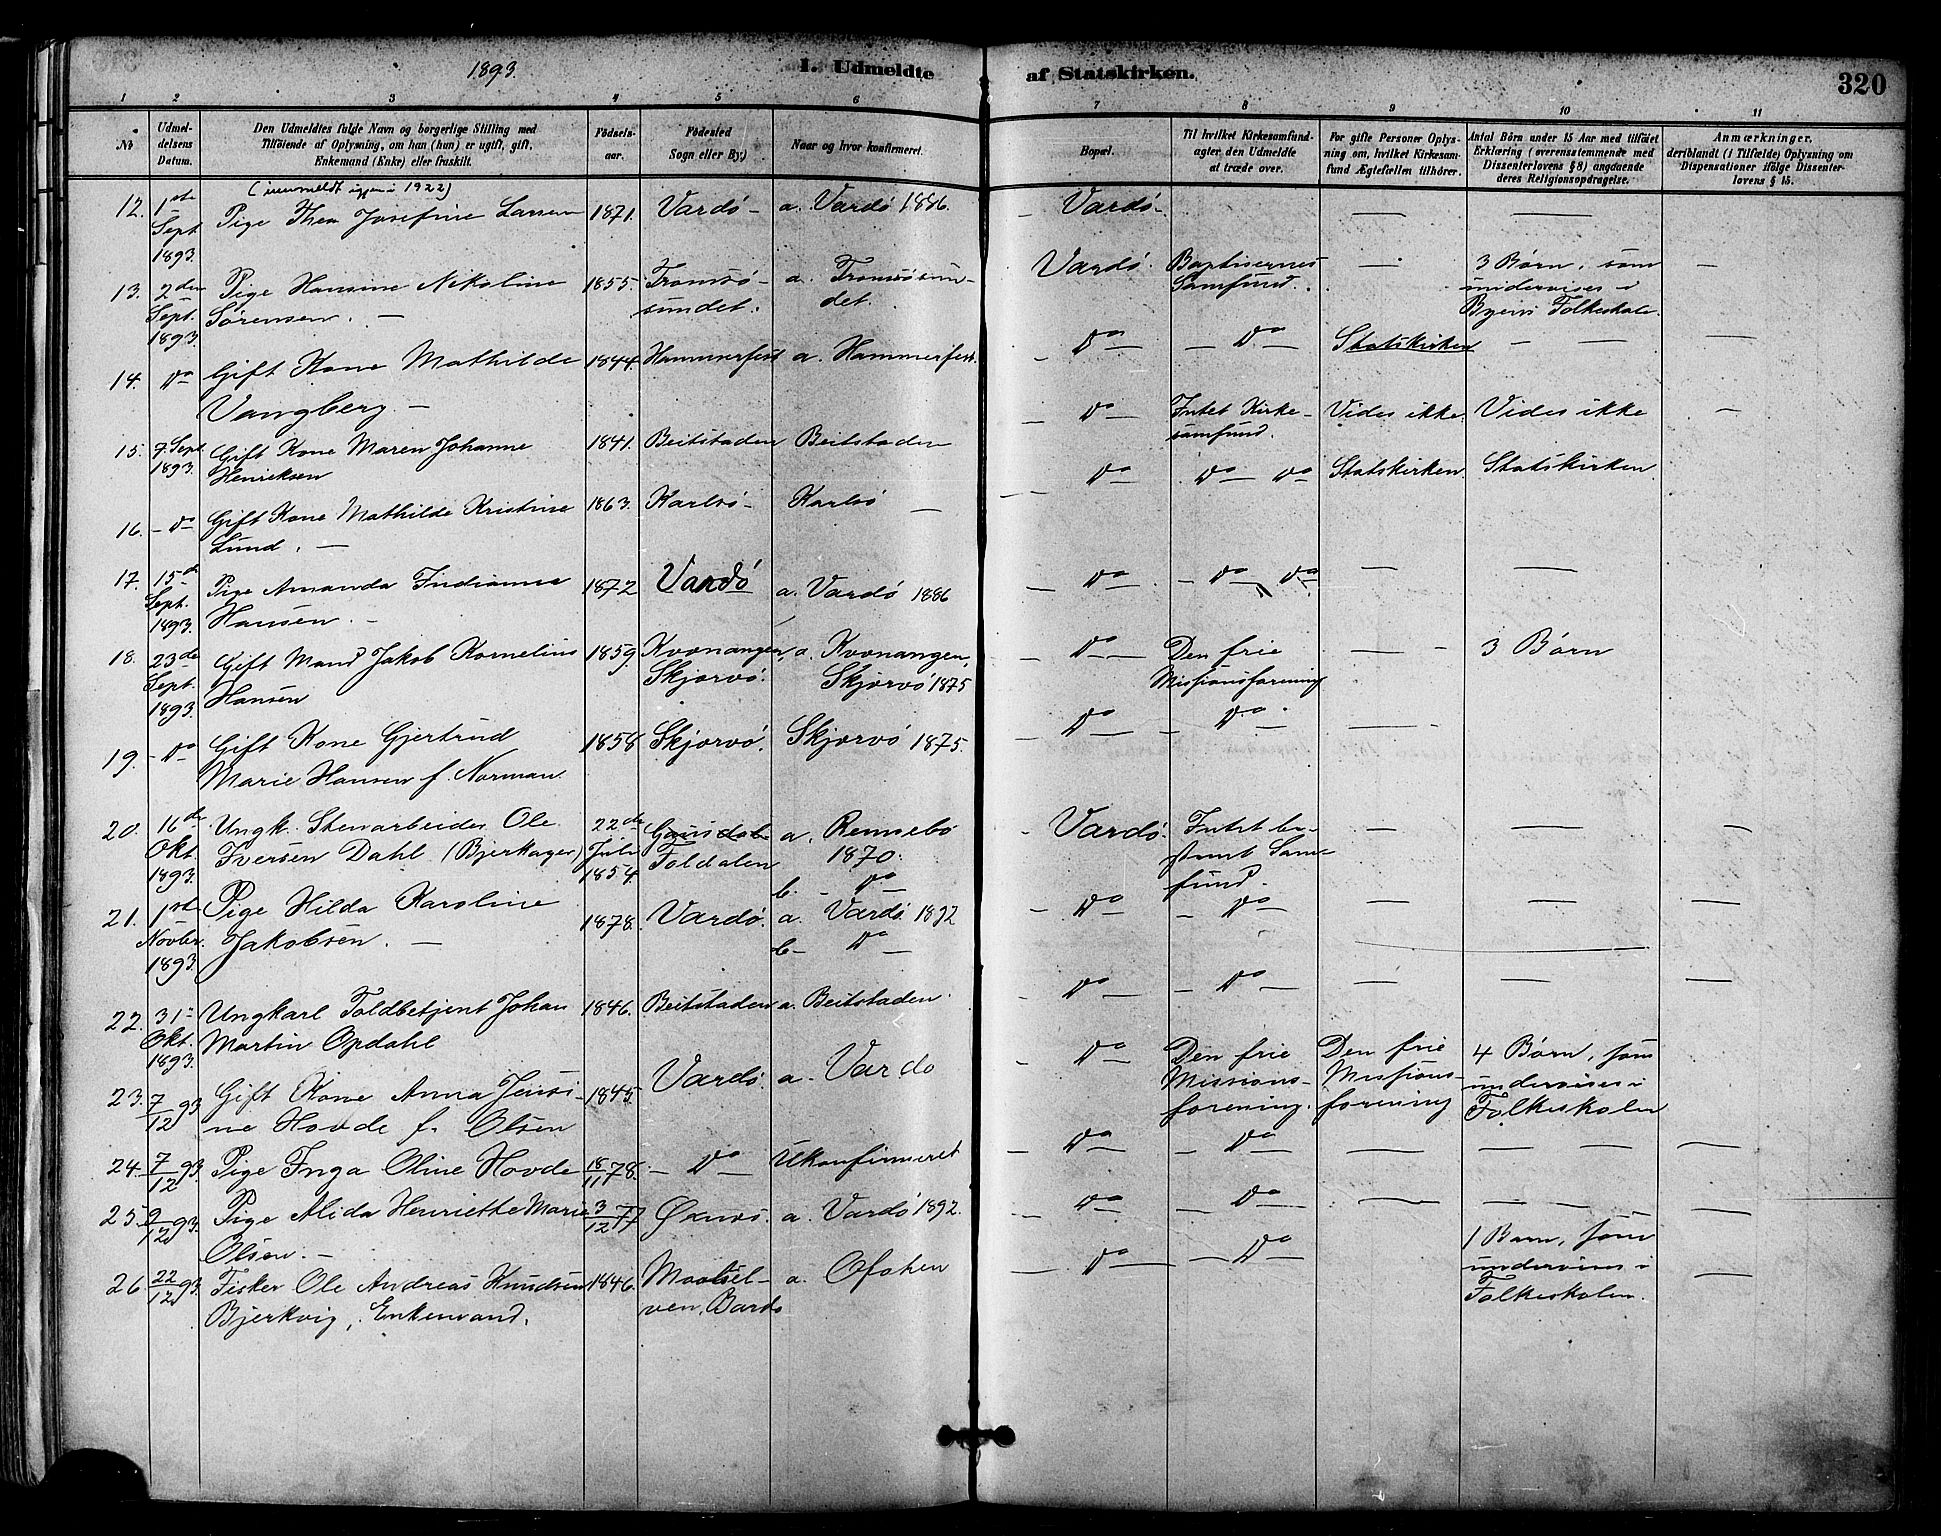 1893.
I. Udmeldte af Statskirken.
320
1 2 3 4 5 6 7 8 9 10 11
No
Udmeldelsens Datum.
Den Udmeldtes fulde Navn og borgerlige Stilling med
Tilføiende af Oplysning, om han (hun) er ugift, gift,
Enkemand (Enke) eller fraskilt.
Fødselsaar.
Fødested
Sogn eller By.)
Naar og hvor konfirmeret.
Bopæl.
Til hvilket Kirkesamfund
agter den Udmeldte
at træde over.
For gifte Personer Oplysning
om, hvilket Kirkesamfund
Ægtefællen tilhører.
Antal Børn under 15 Aar med tilføiet
Erklæring (overensstemmende med
Dissenterlovens § 8) angaaende
deres Religionsopdragelse.
Anmærkninger,
deriblandt (i Tilfælde) Oplysning om
Dispensationer ifølge Dissenterlovens
§ 15.
(innmeldt igjen i 1922)
12. 1ste Sept 1893. Pige Thea Josefine Larsen 1871. Vardø - a. Vardø 1886. - Vardø. — —
13. 2den Sept. 1893. Pige Hansine Nikoline Sørensen. — 1855. Tromsøsundet. - a. Tromsøsundet. Vardø. Baptisternes Samfund. — 3 Børn, som undervises i Byens Folkeskole. —
14. Do Gift Kone Mathilde Vangberg. — 1844. Hammerfest a. Hammerfest. - Do - Do Statskirken - — —
15. 7. Sept 1893. Gift Kone Maren Johanne Henriksen 1841. Beitstaden Beitstaden - Do Intet Kirkesamfund. Vides ikke. Vides ikke —
16. - Do Gift Kone Mathilde Kristine Lund. — 1863. Karlsø - Karlsø — - Do Do Do Statskirken Statskirken.
17. 15de Sept. 1893. Pige Amanda Indianna Hansen. - 1872 Vardø a. Vardø 1886 - Do - Do Do — —
18. 23de Sept. 1893. Gift Mand Jakob Kornelius Hansen 1859. Kvænangen, Skjærvø. a. Kvænangen, Skjærvø 1875 - Do Den frie Missionsforening — - 3 Børn
19. - Do Gift Kone Gjertrud Marie Hansen f. Norman. 1858 Skjærvø. Skjærvø 1875. - Do - Do —
20. 16de Okt. 1893. Ungk. Stenarbeider Ole Iversen Dahl (Bjerkager) 22de Juli 1854. Foldalen a. Rennebo 1870. b. - Do - Vardø. Intet bestemt Samfund. — — —
21. 1ste Novbr. 1893. Pige Hilda Karoline Jakobsen. — 1878. Vardø. a. Vardø. 1892 b - Do - Do - Do — — —
22. 31- Okt. 1893. Ungkarl Toldbetjent Johan Martin Opdahl 1846. Beitstaden a. Beitstaden. - Do Do — — —
23. 7/12 93 Gift Kone Anna Jensine Hovde f. Olsen 1845. Vardø. a. Vardø - Do Den frie Missionsforening. Den frie Missionsforening 4 Børn, som undervises i Folkeskolen
24. 7/12 93. Pige Inga Oline Hovde 18/11 78. - Do Ukonfirmeret - Do - Do — — —
25. 9/12 93. Pige Alida Henriette Marie Olsen. - 3/12 77 Øxnes. a. Vardø 1892. - Do - Do — — —
26. 22/12 93. Fisker Ole Andreas Knudsen Bjerkvig, Enkemand. 1846. Maalselven, Bardo a. Ofoten - Do - Do 1 Barn, som undervises i Folkeskolen. —